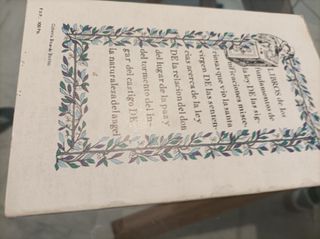 LIBROS de los
fundamentos de
la ley DE las sig-
nificaciones miste-
riosas que vio la santa
virgen DE las senten-
cias acerca de la ley
DE la relacion del don
del lugar de la paz y
del tormento del lu-
gar del castigo DE
la naturaleza del angel